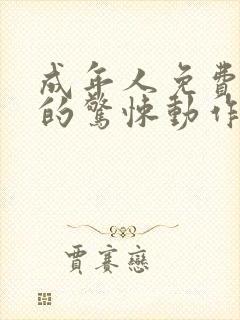 成年人免費
的驚悚動作
賈賽戀